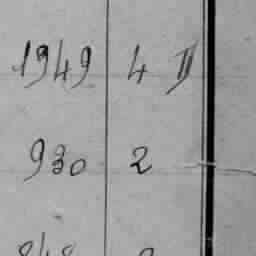 1949 4 II
930 2